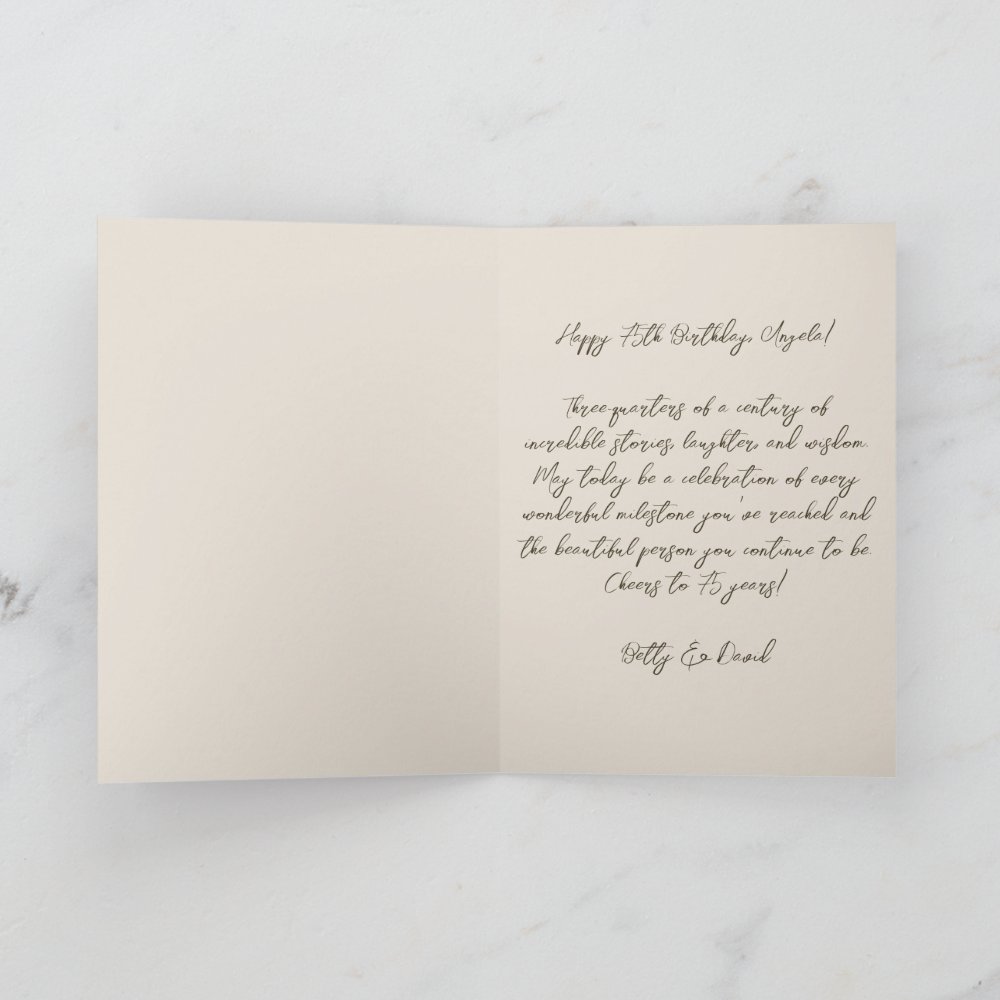 Happy 75th Birthday, Angela!
Three-quarters of a century of
incredible stories, laughter, and wisdom.
May today be a celebration of every
wonderful milestone you've reached and
the beautiful person you continue to be.
Cheers to 75 years!
Betty & David